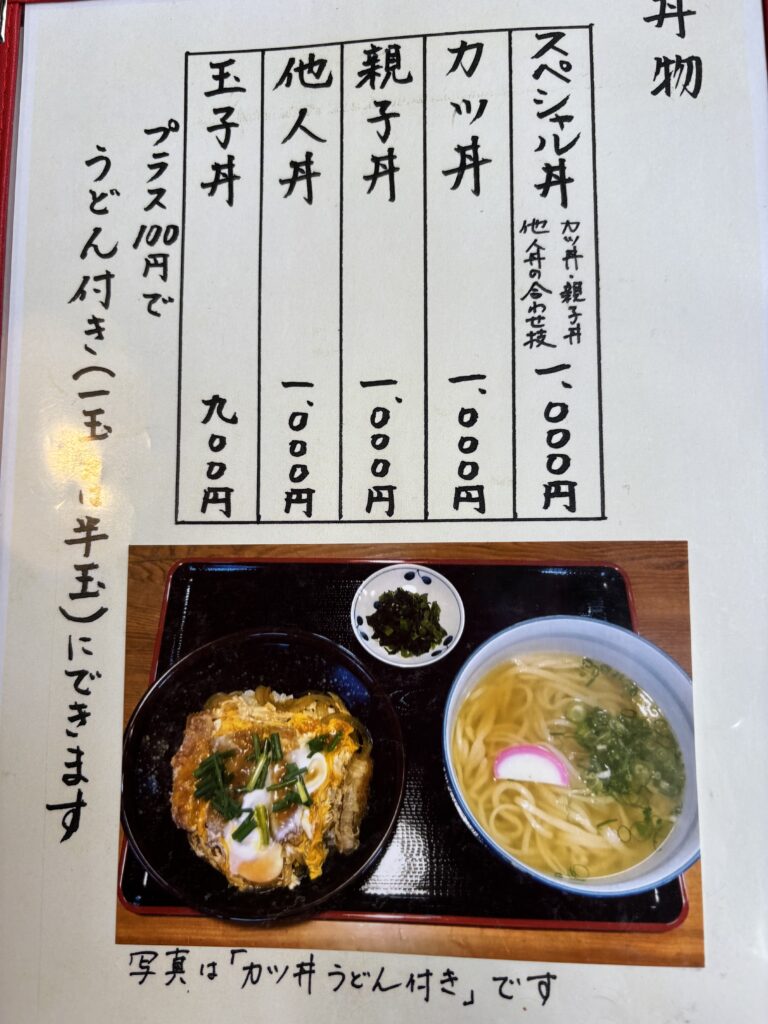 丼物
スペシャル丼 カツ丼・親子丼
他人丼の合わせ技 一、〇〇〇円
カツ丼 一、〇〇〇円
親子丼 一、〇〇〇円
他人丼 一、〇〇〇円
玉子丼 九〇〇円
プラス100円で
うどん付き(一玉 は半玉)にできます
写真は「カツ丼うどん付き」です